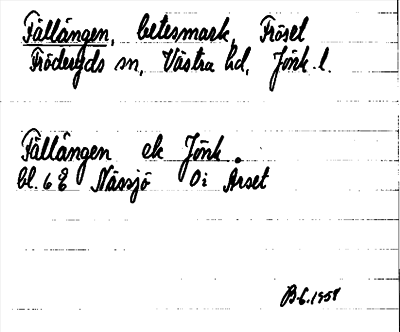 Fällängen, betesmark, Frösel
Fröderyds sn, Västra hd, Jönk. l.
Fällängen ek Jönk.
bl. 6 E Nässjö Oi Arset
B.G. 1958